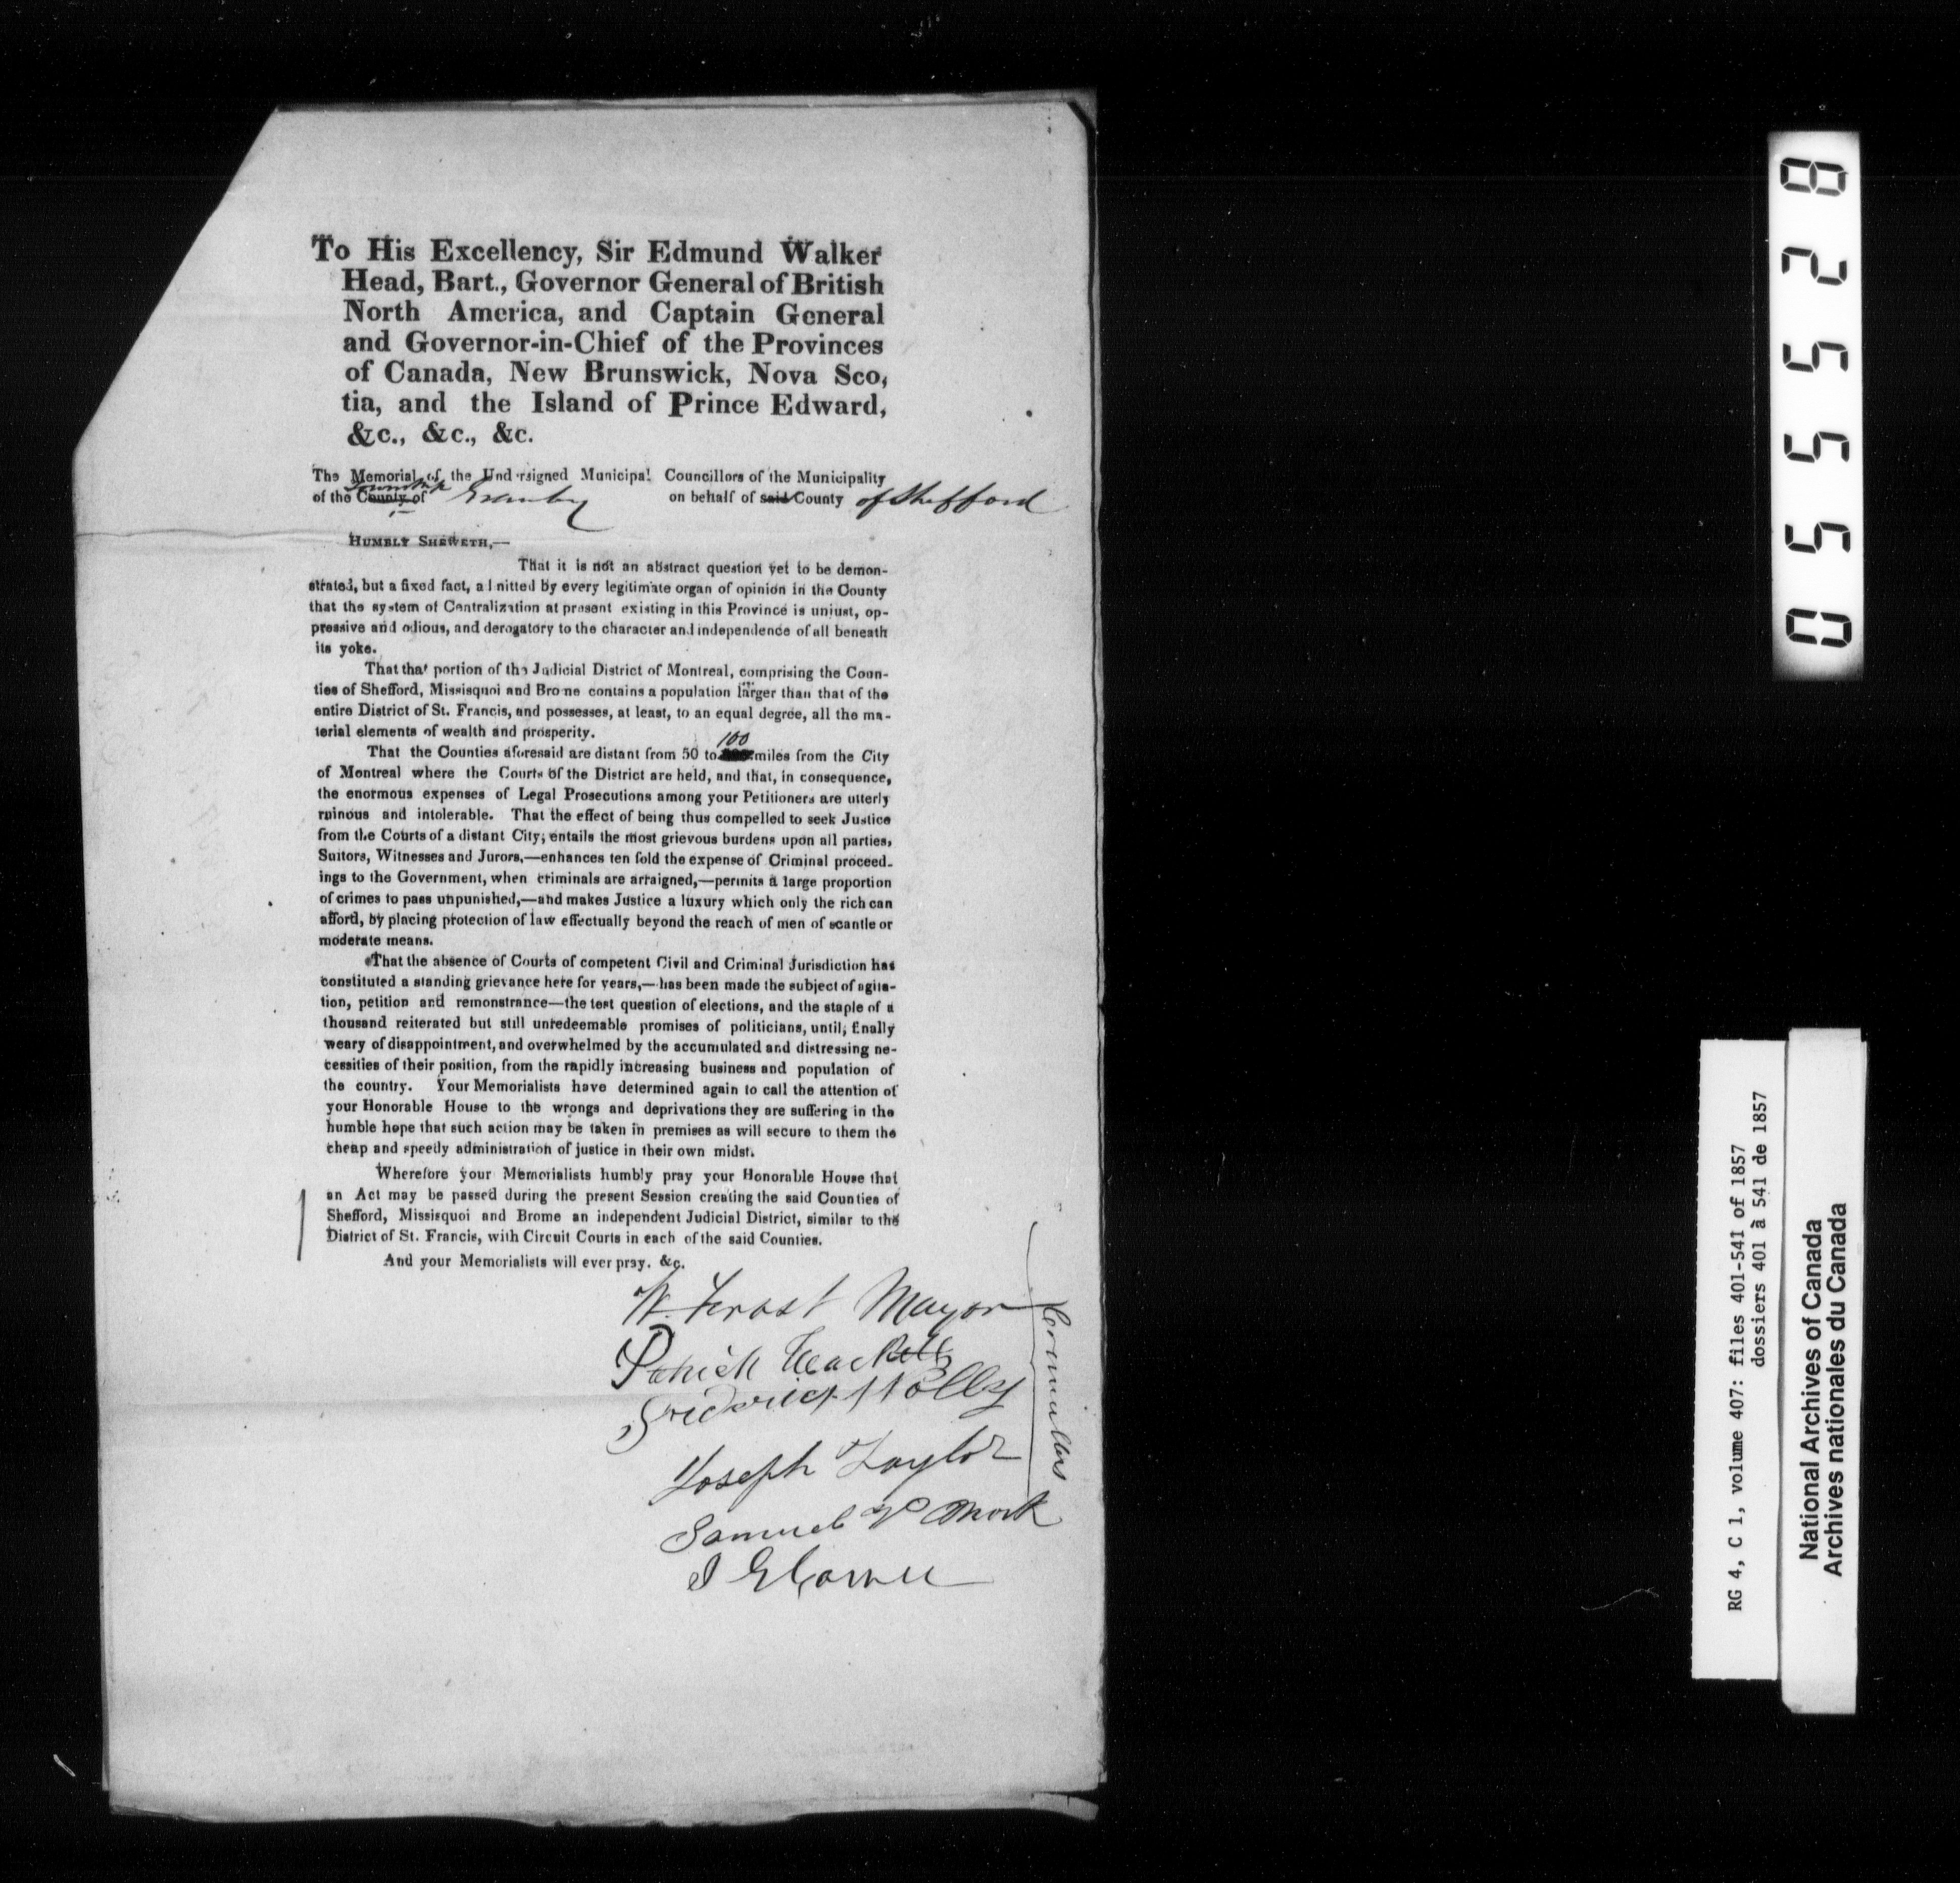 To His Excellency, Sir Edmund Walker
Head, Bart., Governor General of British
North America, and Captain General
and Governor-in-Chief of the Provinces
of Canada, New Brunswick, Nova Sco,
tia, and the Island of Prince Edward,
&c., &c., &c.
The Memorial of the Undersigned Municipal Councillors of the Municipality
Township
of the County of Granby on behalf of said County of Shefford
HUMBLY SHEWETH,—
That it is not an abstract question yet to be demon-
strated, but a fixed fact, admitted by every legitimate organ of opinion in the County
that the system of Centralization at present existing in this Province is unjust, op-
pressive and odious, and derogatory to the character and independence of all beneath
its yoke.
That that portion of the Judicial District of Montreal, comprising the Coun-
ties of Shefford, Missisquoi and Brome contains a population larger than that of the
entire District of St. Francis, and possesses, at least, to an equal degree, all the ma-
terial elements of wealth and prosperity.
100
That the Counties aforesaid are distant from 50 to miles from the City
of Montreal where the Courts of the District are held, and that, in consequence,
the enormous expenses of Legal Prosecutions among your Petitioners are utterly
ruinous and intolerable. That the effect of being thus compelled to seek Justice
from the Courts of a distant City, entails the most grievous burdens upon all parties,
Suitors, Witnesses and Jurors,—enhances ten fold the expense of Criminal proceed-
ings to the Government, when criminals are arraigned,—permits a large proportion
of crimes to pass unpunished,—and makes Justice a luxury which only the rich can
afford, by placing protection of law effectually beyond the reach of men of scantle or
moderate means.
That the absence of Courts of competent Civil and Criminal Jurisdiction has
constituted a standing grievance here for years,—has been made the subject of agita-
tion, petition and remonstrance—the test question of elections, and the staple of a
thousand reiterated but still unredeemable promises of politicians, until, finally
weary of disappointment, and overwhelmed by the accumulated and distressing ne-
cessities of their position, from the rapidly increasing business and population of
the country. Your Memorialists have determined again to call the attention of
your Honorable House to the wrongs and deprivations they are suffering in the
humble hope that such action may be taken in premises as will secure to them the
cheap and speedy administration of justice in their own midst.
Wherefore your Memorialists humbly pray your Honorable House that
an Act may be passed during the present Session creating the said Counties of
Shefford, Missisquoi and Brome an independent Judicial District, similar to the
District of St. Francis, with Circuit Courts in each of the said Counties.
And your Memorialists will ever pray. &c.
Frost Mayor
Patrick Hackett
Frederick
Joseph Taylor
Samuel
Councillors
05528
RG 4, C 1, volume 407: files 401-541 of 1857
dossiers 401 à 541 de 1857
National Archives of Canada
Archives nationales du Canada